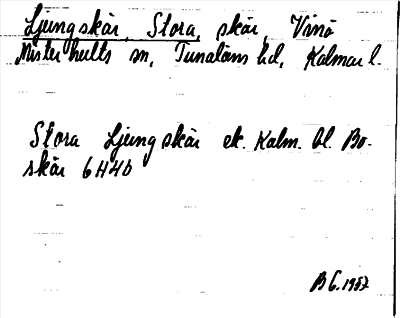 Ljungskär, Stora, skär, Vinö
Misterhults sn, Tunaläns hd, Kalmar l.
Stora Ljungskär ek. Kalm. bl. Bo-
skär 6H4b
BG. 1957